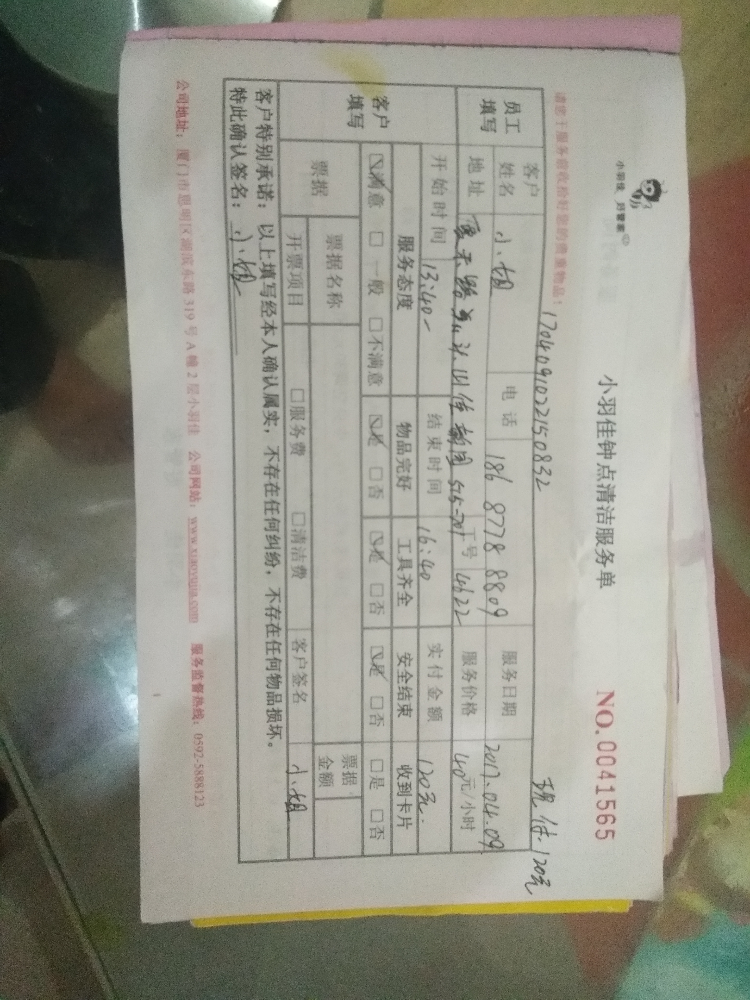 小羽佳 好管家
小羽佳钟点清洁服务单
NO.0041565
请您于服务前收检好您的贵重物品!
1704091022150832
现付120元
员工填写 客户姓名 小姐 电话 186 8778 8809 服务日期 2017.04.09
地址 515-701 工号 4622 服务价格 40元/小时
客户填写 开始时间 13:40- 结束时间 16:40 实付金额 120元.
服务态度 物品完好 工具齐全 安全结束 收到卡片
☑满意 □一般 □不满意 ☑是 □否 ☑是 □否 ☑是 □否 □是 □否
票据 票据名称 票据金额
开票项目 □服务费 □清洁费 客户签名 小姐
客户特别承诺:以上填写经本人确认属实,不存在任何纠纷,不存在任何物品损坏。
特此确认签名:小姐
公司地址:厦门市思明区湖滨东路319号A幢2层小羽佳 公司网站:www.xiaoyujia.com 服务监督热线:0592-5888123